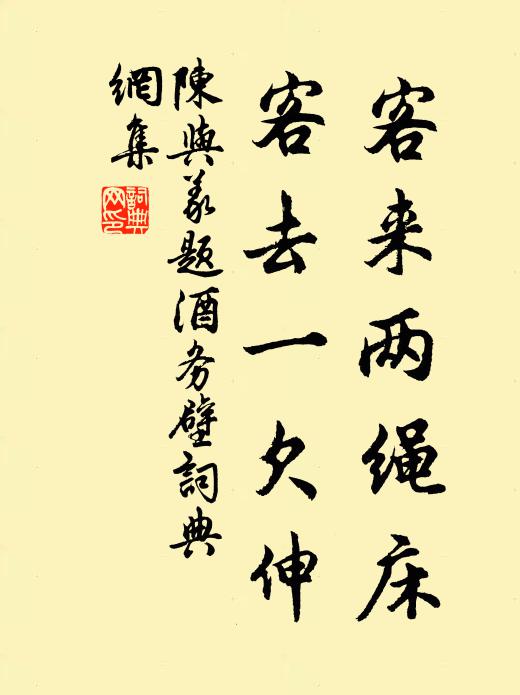 客来两绳床
客去一欠伸
陳與義題酒务壁詞典
網集
詞典
网印